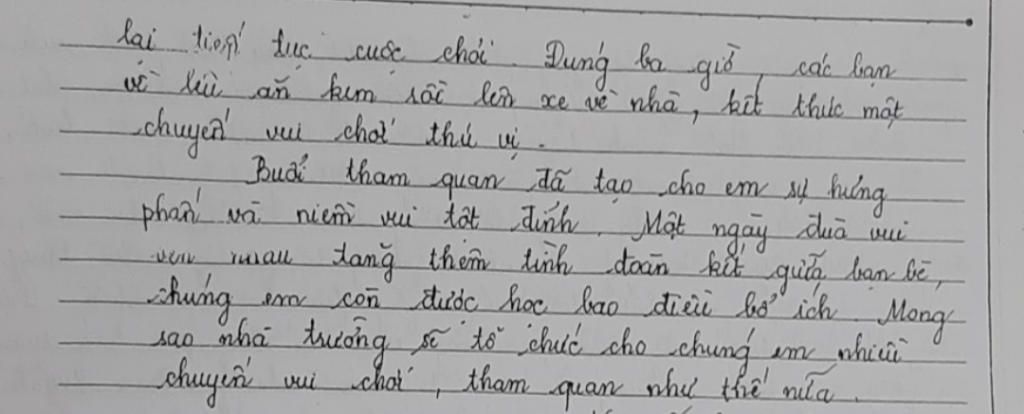 lại tiếp tục cuộc chơi. Đúng ba giờ, các bạn
về lều ăn kem rồi lên xe về nhà, kết thúc một
chuyến vui chơi thú vị.
Buổi tham quan đã tạo cho em sự hứng
phấn và niềm vui tột đỉnh. Một ngày đùa vui
bên nhau tăng thêm tình đoàn kết giữa bạn bè,
chúng em còn được học bao điều bổ ích. Mong
sao nhà trường sẽ tổ chức cho chúng em nhiều
chuyến vui chơi, tham quan như thế nữa.